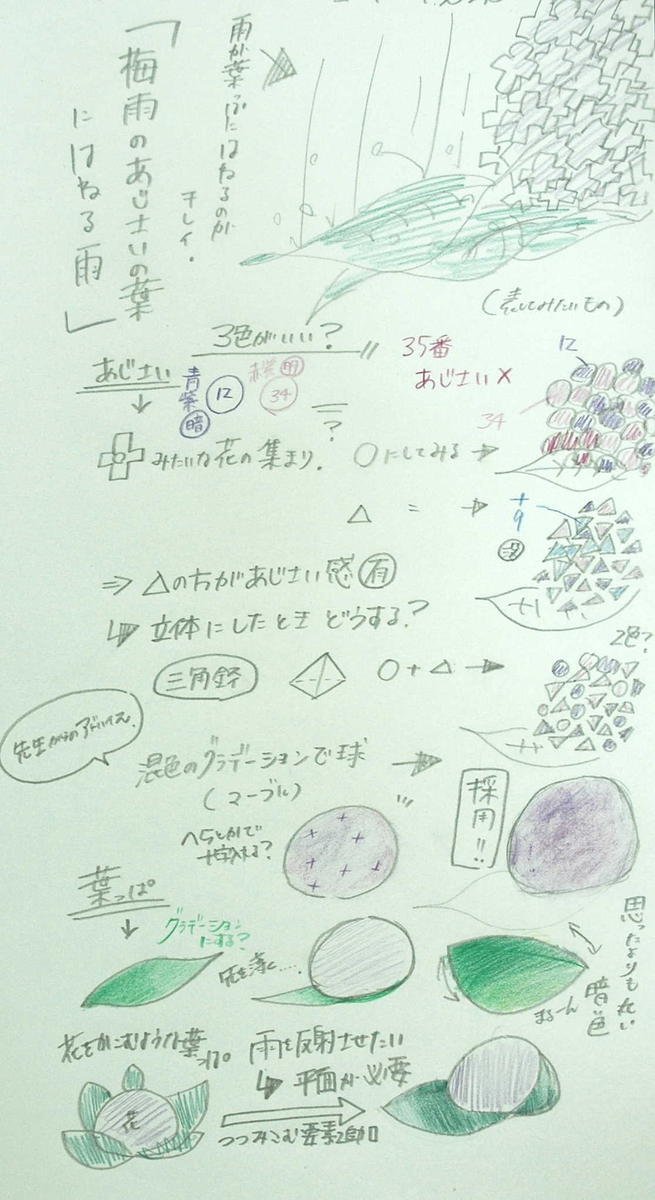 「梅雨のあじさいの葉
にはねる雨」
雨が葉っぱにはねるのが
キレイ.
(表してみたいもの)
3色がいい?
35番
あじさい×
あじさい
青紫
暗
12
赤紫
明
34
?
12
34
みたいな花の集まり.
○にしてみる →
△ 〃 →
+
9
⇒ △の方があじさい感 有
↳ 立体にしたとき どうする?
三角錐
○+△ →
2色?
先生からのアドバイス.
混色のグラデーションで球
(マーブル)
ヘラとかで
十字入れる?
採用!!
葉っぱ
グラデーション
にする?
先を薄く....
まるーん
思ったよりも丸い
暗い色
花をかこむような葉っぱ
花
雨を反射させたい
↳ 平面が必要
つつみこむ要素追加